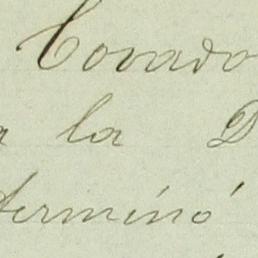 Covado
a la D
terminó